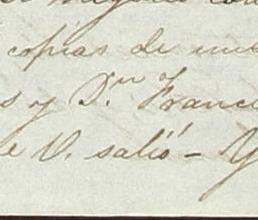 copias de nue
s y Dn y Franci
e V. salió - Y